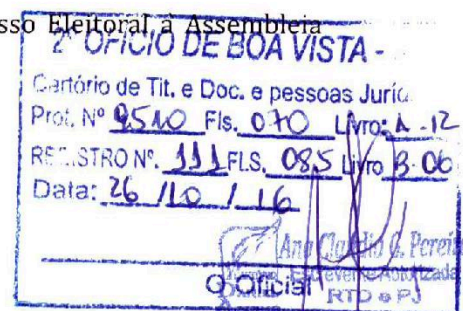 sso Eleitoral à Assembleia
2º OFÍCIO DE BOA VISTA -
Cartório de Tit. e Doc. e pessoas Juríd.
Prot. Nº 9510 Fls. 070 Livro: A-12
REGISTRO Nº. 111 FLS. 085 Livro B-06
Data: 26 / 10 / 16
Ana Claudia G. Pereira
Escrevente Autorizada
O Oficial RTD e PJ